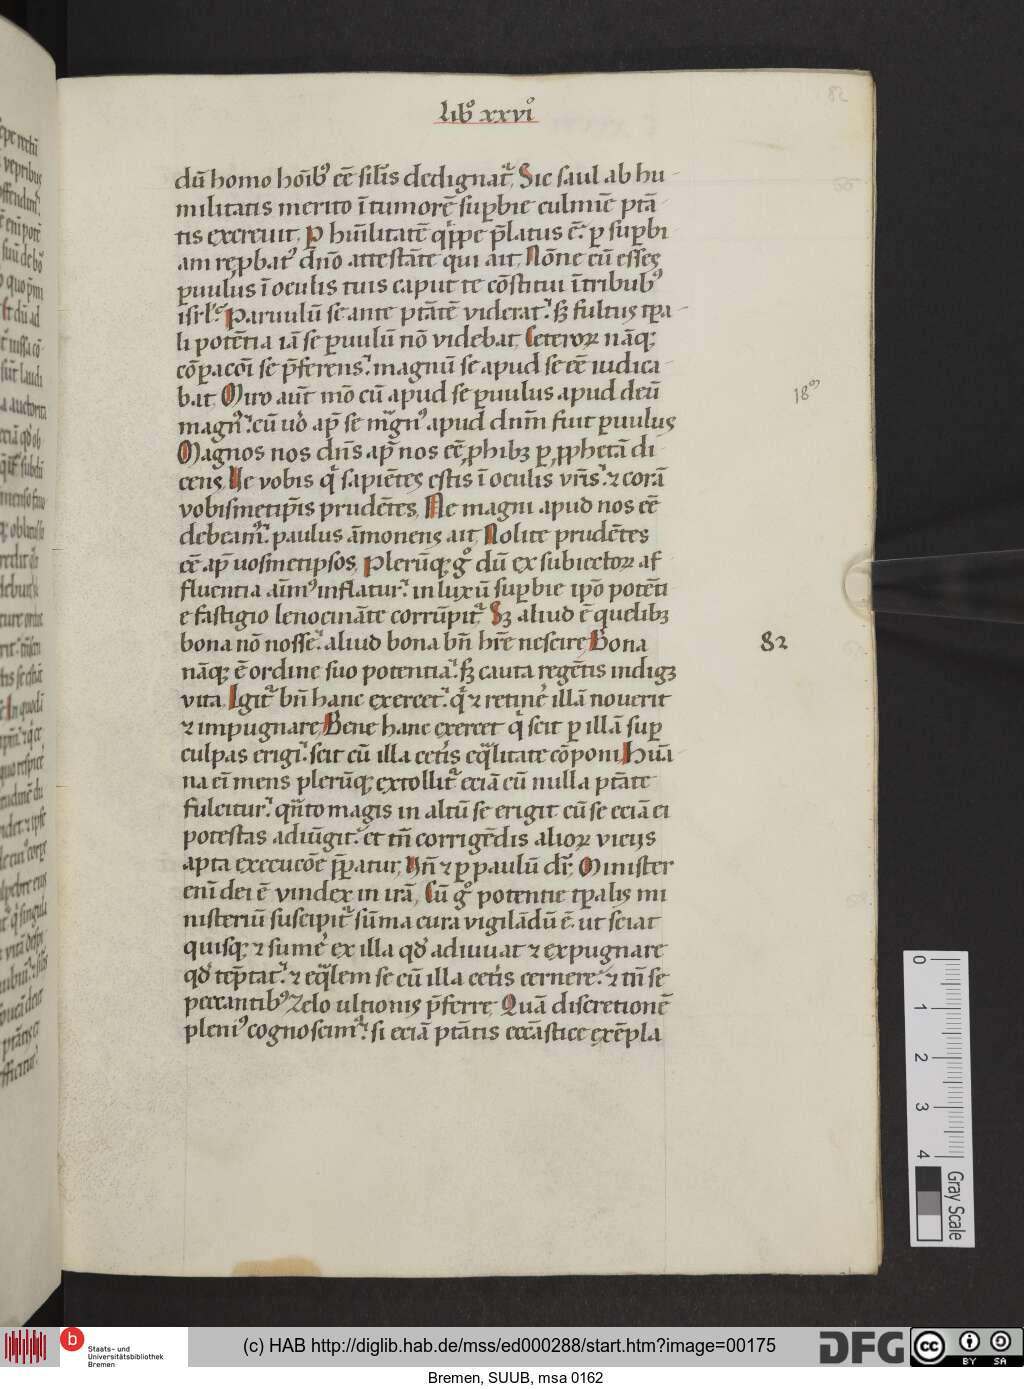 Libº xxviº
dū homo hoībꝰ eē silīs dedignat᷑. Sic saul ab hu-
militatis merito ī tumorē suꝑbie culmīe ptā-
tis excreuit. ꝑ huīlitatē qͥppe p̄latus ē. ꝑ suꝑbi
am reꝓbatꝰ dn̄o attestāte qui ait. Nōne cū esses
ꝑuulus ī oculis tuis caput te cōstitui ī tribubꝰ
isrl᷑. Paruulū se ante ptātē viderat. sꝫ fultus tꝑa-
li potētia iā se ꝑuulū nō videbat. Ceteroꝝ nāqꝫ
cōꝑacōi se p̄ferens. magnū se apud se eē iudica-
bat. Miro aūt mō cū apud se ꝑuulus apud deū
magnꝰ. cū uo͛ ap͛ se magnꝰ. apud dnm̄ fuit ꝑuulus
Magnos nos dn̄s ap͛ nos eē ꝓhibꝫ ꝑ ꝓphetā di-
cens. Ve vobis qͥ sapiētes estis ī oculis vr̄is. ⁊ corā
vobismetip̄is prudētes. Ne magni apud nos eē
debeamꝰ. paulus āmonens ait. Nolite prudētes
eē ap͛ uosmetipsos. Plerūqꝫ gͦ dū ex subiectoꝝ af-
fluentia aīmꝰ inflatur. in luxū suꝑbie ip̄o potēti
e fastigio lenocināte corrūpit᷑. Sꝫ aliud ē quelibꝫ
bona nō nosse. aliud bona bn̄ hr̄e nescire. Bona
nāqꝫ ē ordine suo potentia. sꝫ cauta regētis indigꝫ
vita. Igit᷑ bn̄ hanc exercet. qͥ ⁊ retine͛ illā nouerit
⁊ impugnare. Bene hanc exercet qͥ scit ꝑ illā suꝑ
culpas erigi. scit cū illa cet͛is eq̄litate cōponi. Huā-
na ei̅ mens plerūqꝫ extollit᷑ eciā cū nulla ptāte
fulcitur. qn̄to magis in altū se erigit cū se eciā ei
potestas adiūgit. et tn̄ corrigēdis alioꝝ vicijs
apta execucōe p̄ꝑatur. Hn̄ ⁊ ꝑ paulū dr̄. Minister
enī dei ē vindex in irā. Cū gͦ potentie tꝑalis mi
nisteriū suscipit᷑ sūma cura vigilādū ē. ut sciat
quisqꝫ ⁊ sume͛ ex illa qd̛ adiuuat ⁊ expugnare
qd̛ tēptat. ⁊ eq̄lem se cū illa cet͛is cernere. ⁊ tn̄ se
peccantibꝰ zelo ultionis p̄ferre. Quā discretionē
pleniꝰ cognoscimꝰ. si eciā ptātis eccāstice exēpla
18ꝰ
82
82
0
1
2
3
4
Gray Scale
b
Staats- und
Universitätsbibliothek
Bremen
(c) HAB http://diglib.hab.de/mss/ed000288/start.htm?image=00175
DFG
cc
BY SA
Bremen, SUUB, msa 0162